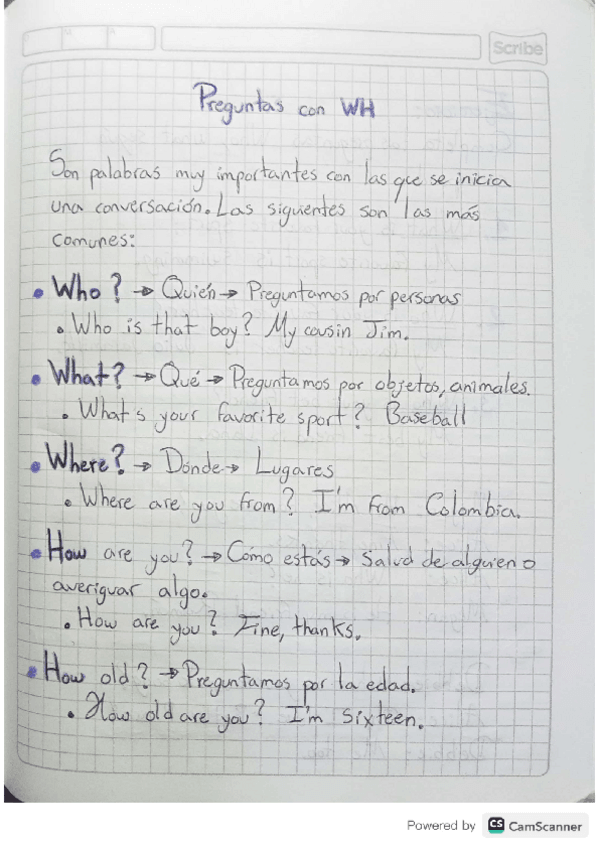 Scribe
Preguntas con WH
Son palabras muy importantes con las que se inicia
una conversación. Las siguientes son las más
comunes:
• Who? → Quién → Preguntamos por personas
• Who is that boy? My cousin Jim.
• What? → Qué → Preguntamos por objetos, animales.
• What's your favorite sport? Baseball
• Where? → Dónde → Lugares
• Where are you from? I'm from Colombia.
• How are you? → Cómo estás → Salud de alguien o
averiguar algo.
• How are you? Fine, thanks.
• How old? → Preguntamos por la edad.
• How old are you? I'm sixteen.
Powered by CS CamScanner